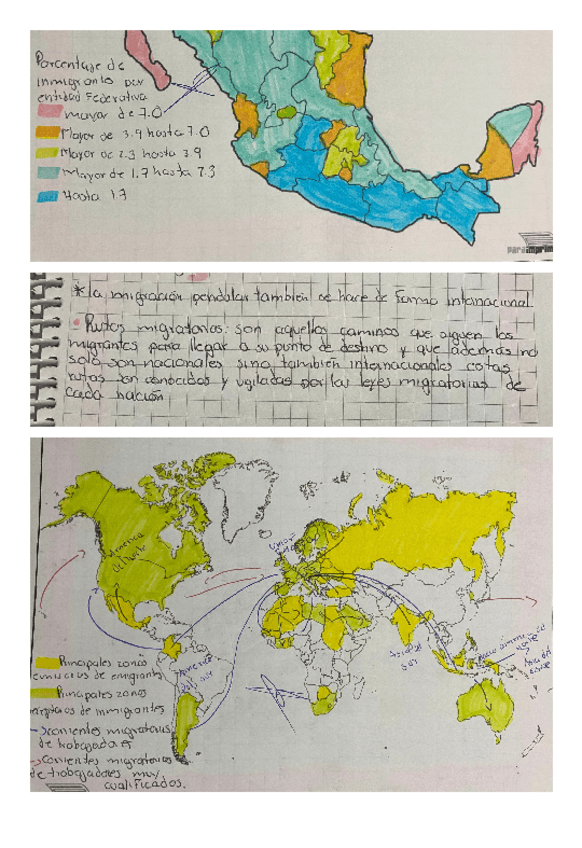 Porcentaje de
inmigrante por
entidad Federativa
mayor de 7.0
Mayor de 3.9 hasta 7.0
Mayor de 2.3 hasta 3.9
Mayor de 1.7 hasta 2.3
Hasta 1.7
paraimprimir
*la migración pendular también se hace de forma internacional
Rutas migratorias: son aquellos caminos que siguen los
migrantes para llegar a su punto de destino y que además no
solo son nacionales sino también internacionales estas
rutas son conocidas y vigiladas por las leyes migratorias de
cada nación
America
del norte
Union
America
del sur
Asia del
Principales zonas
emisoras de emigrantes
Principales zonas
receptoras de inmigrantes
corrientes migratorias
de trabajadores
corrientes migratorias
de trabajadores muy
cualificados.